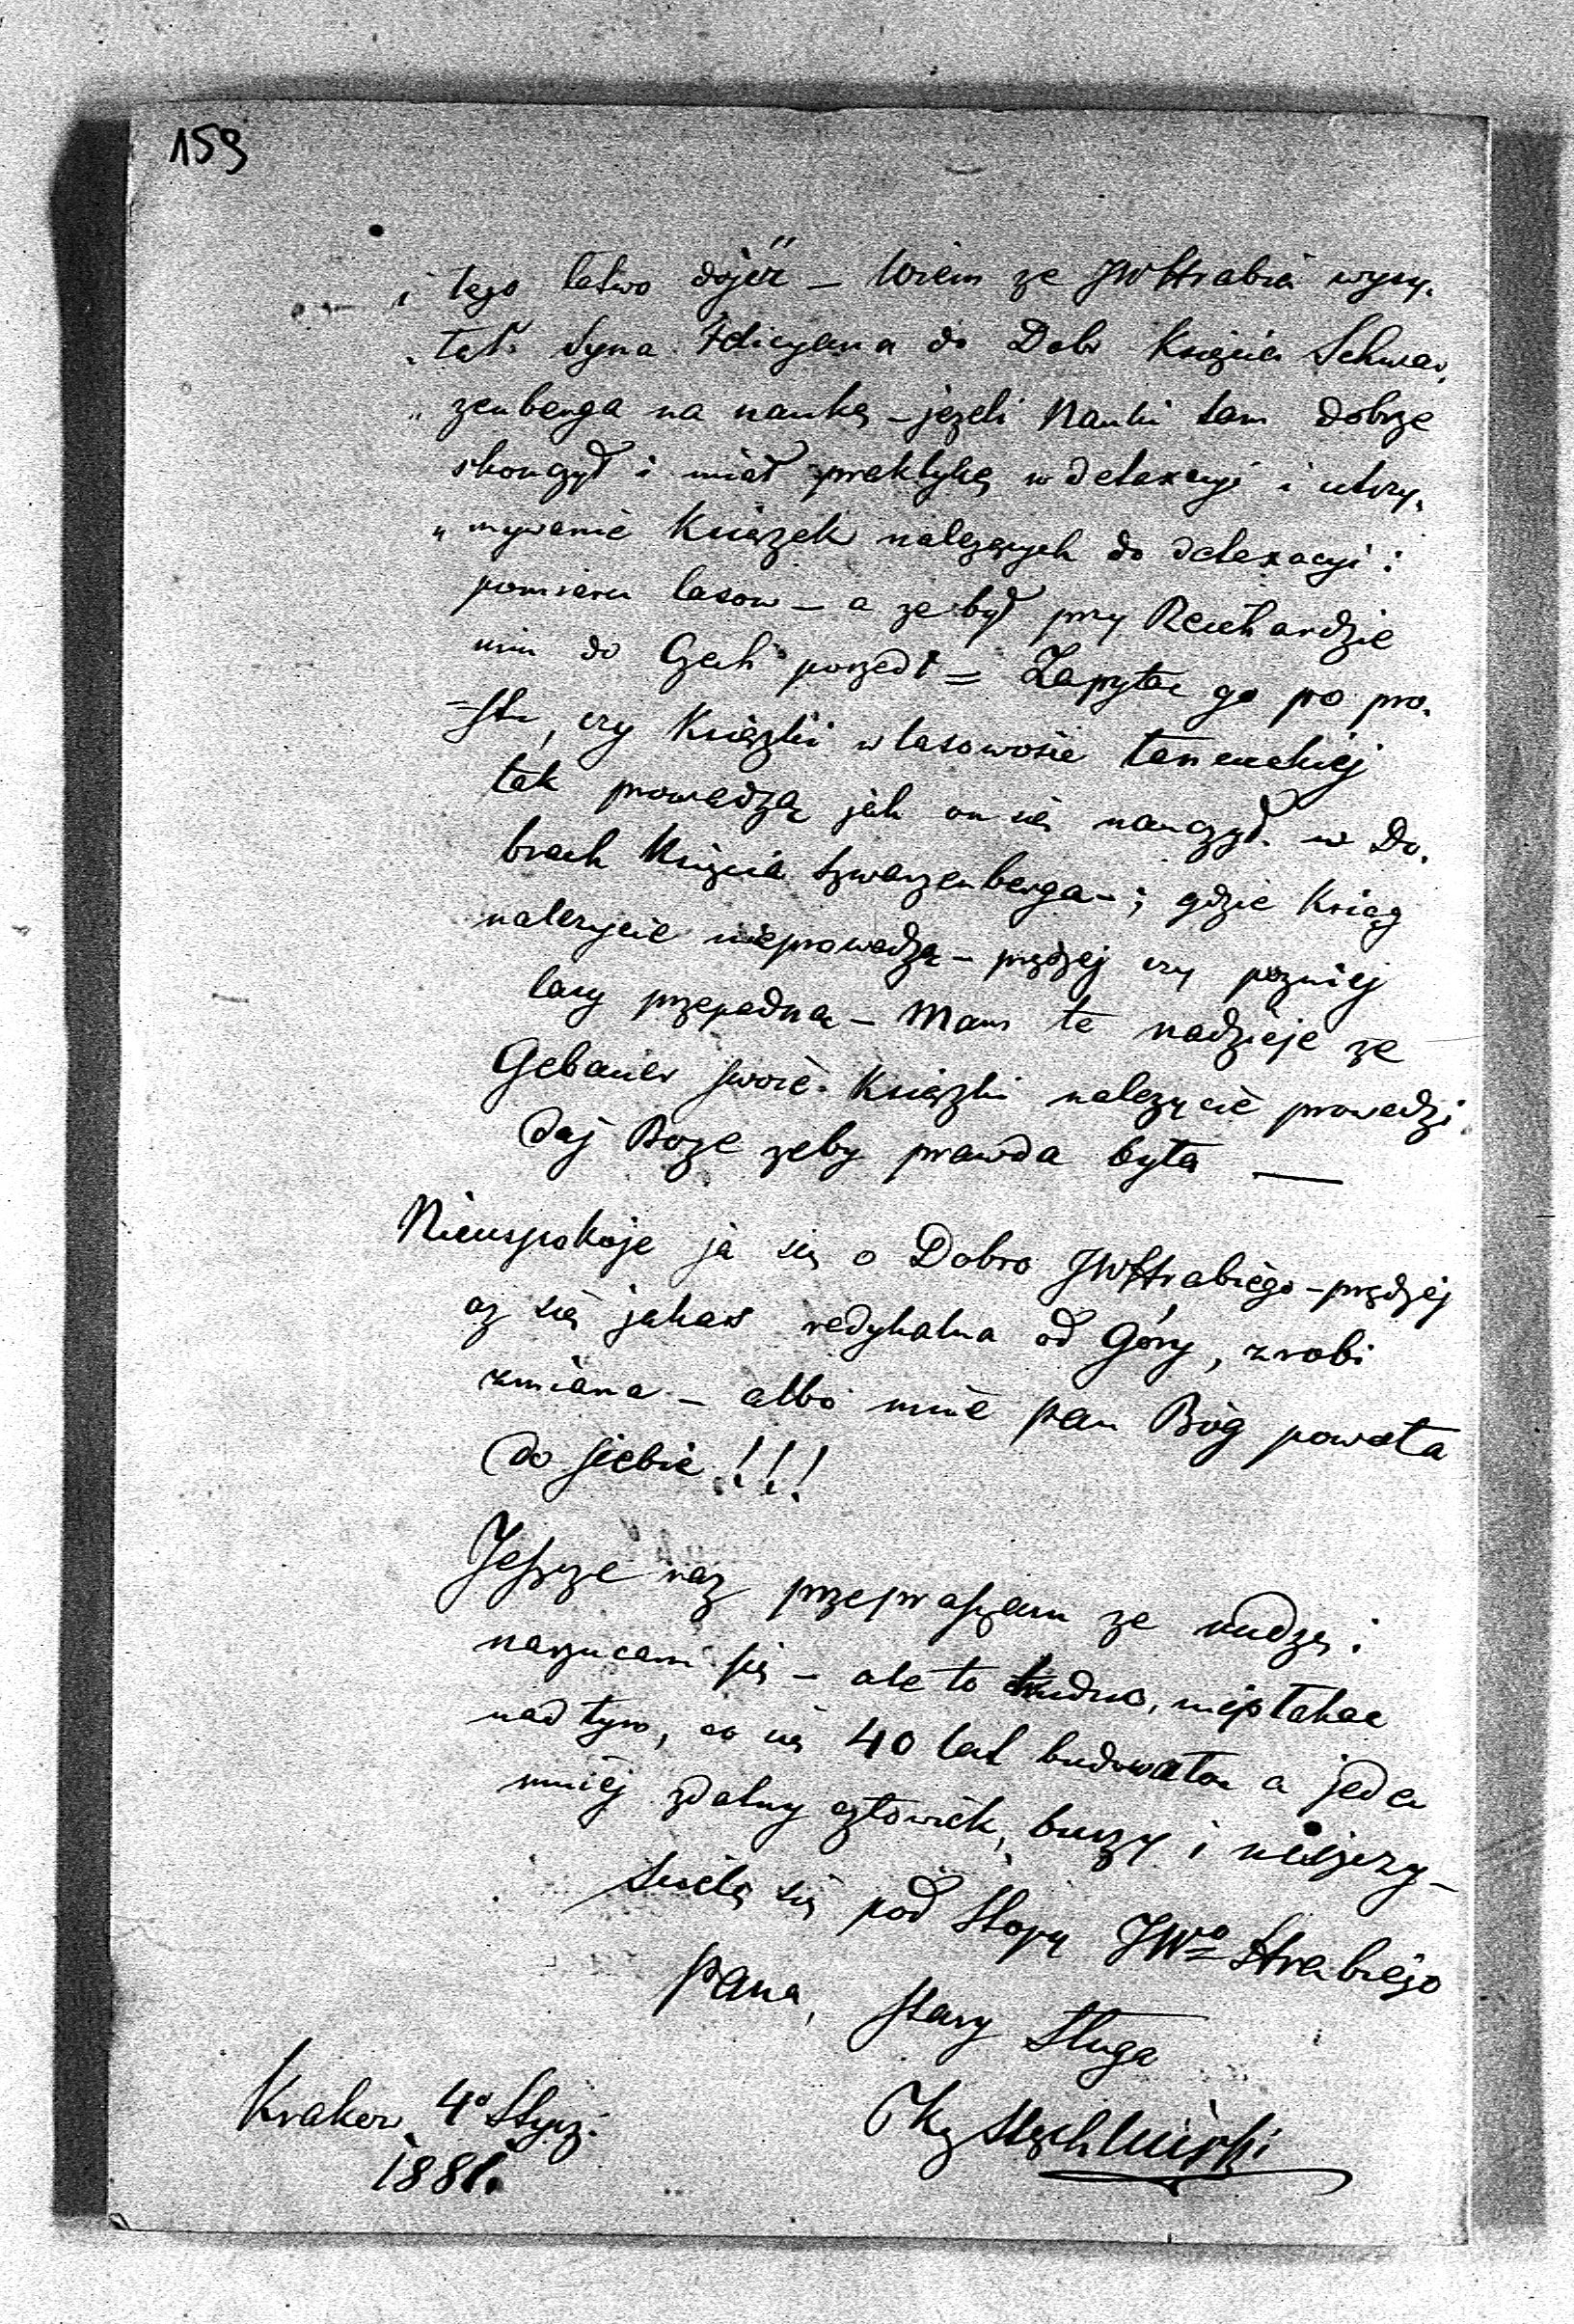 159
i tego łatwo dojść — Wiem ze JWHrabia wysy,
„ łał Syna Felicyana do Dobr Księcia Schwar,
„ zenberga na naukę – jezeli Nauki tam dobrze
skonczył i miał praktykę w detaxacyi i utrzy,
„ mywanie Książek nalezących do detaxacyi i
pomiaru lasow – a ze był przy Reichardzie
nim do Czech poszedł = Zapytac go po pro,
=stu, czy Książki w lasowosie
tak prowadzą jak on się nauczył w Do,
brach Księcia Szwarzenberga –; gdzie Książg
nalezycie nieprowadzą – prędzej czy pozniej
lasy przepadna – Mam te nadzieje ze
Gebauer swoie Książki nalezycie prowadzi
daj Boze zeby prawda była —
Nieuspokoje ja się o Dobro JWHrabiego – prędzej
az się jakas radykalna od Góry, zrobi
zmiana – albo mnie pan Bóg powoła
do siebie!!!
Jeszcze raz przepraszam ze nudzę i
narzucam się – ale to trudno, nieptakac
nad tym, co się 40 lat budowało a jeden
mniej zdalny człowiek, burzy i niszczy –
Sciele się pod Stopy JWo Hrabiego
pana, stary Sługa
Krakow 4o Stycz.
1881.